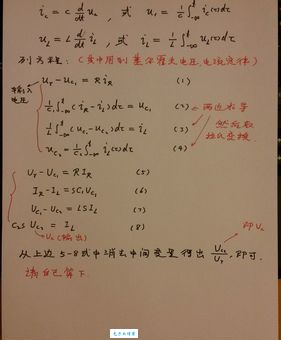 i_c = C d/dt u_c , 或 u_c = 1/C ∫_{-∞}^t i_c(τ)dτ
u_L = L d/dt i_L , 或 i_L = 1/L ∫_{-∞}^t u_L(τ)dτ
列方程:(其中用到基尔霍夫电压,电流定律)
输入电压
u_r - u_{C1} = R i_R (1)
1/C_1 ∫_{-∞}^t (i_R - i_L)dτ = u_{C1} (2)
1/L ∫_{-∞}^t (u_{C1} - u_{C2})dτ = i_L (3)
u_{C2} = 1/C_2 ∫_{-∞}^t i_L(τ)dτ (4)
两边求导
然后取
拉氏变换.
U_r - U_{C1} = R I_R (5)
I_R - I_L = S C_1 U_{C1} (6)
U_{C1} - U_{C2} = L S I_L (7)
C_2 S U_{C2} = I_L (8)
U_c(输出)
即U_c
从上边5-8式中消去中间变量得出 U_{C2}/U_r ,即可.
请自己算下.